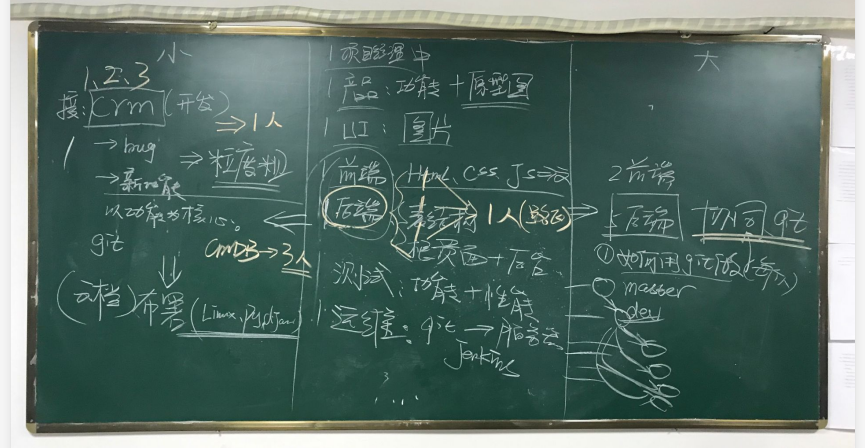 小
1、2、3
接: crm (开发)
⇒ 1人
1 → bug
⇒ 粒度粗
→ 新功能
以功能为核心。
git
CMDB → 3人
(文档) 布署 (Linux、
1 项目经理
1 产品: 功能 + 原型图
1 UI: 图片
1 前端 Html、Css、Js
1 后端 表结构 1人
把页面 + 后台
测试: 功能 + 性能
1 运维: git → 服务器
Jenkins
大
2 前端
后端 git
① 如何用git做
master
dev